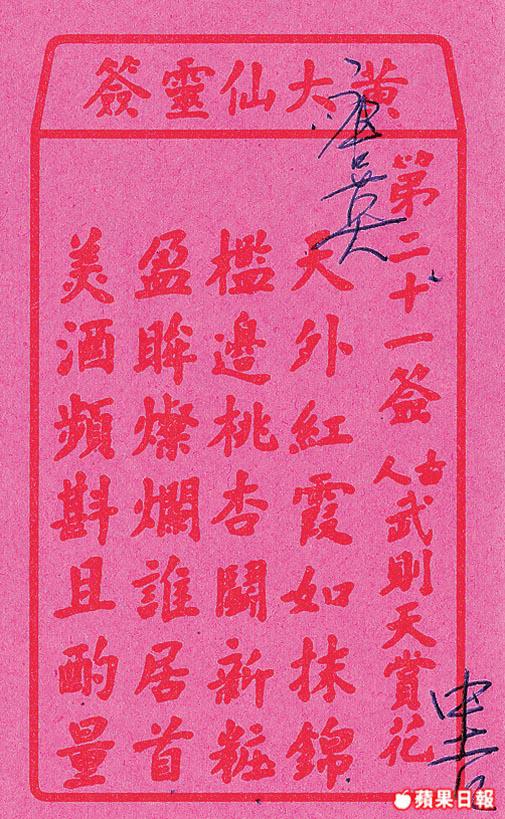 黃大仙靈簽
唐英
第二十一签 古人 武則天賞花
天外紅霞如抹錦
檻邊桃杏鬭新粧
盈眸燦爛誰居首
美酒頻斟且酌量
中吉
蘋果日報